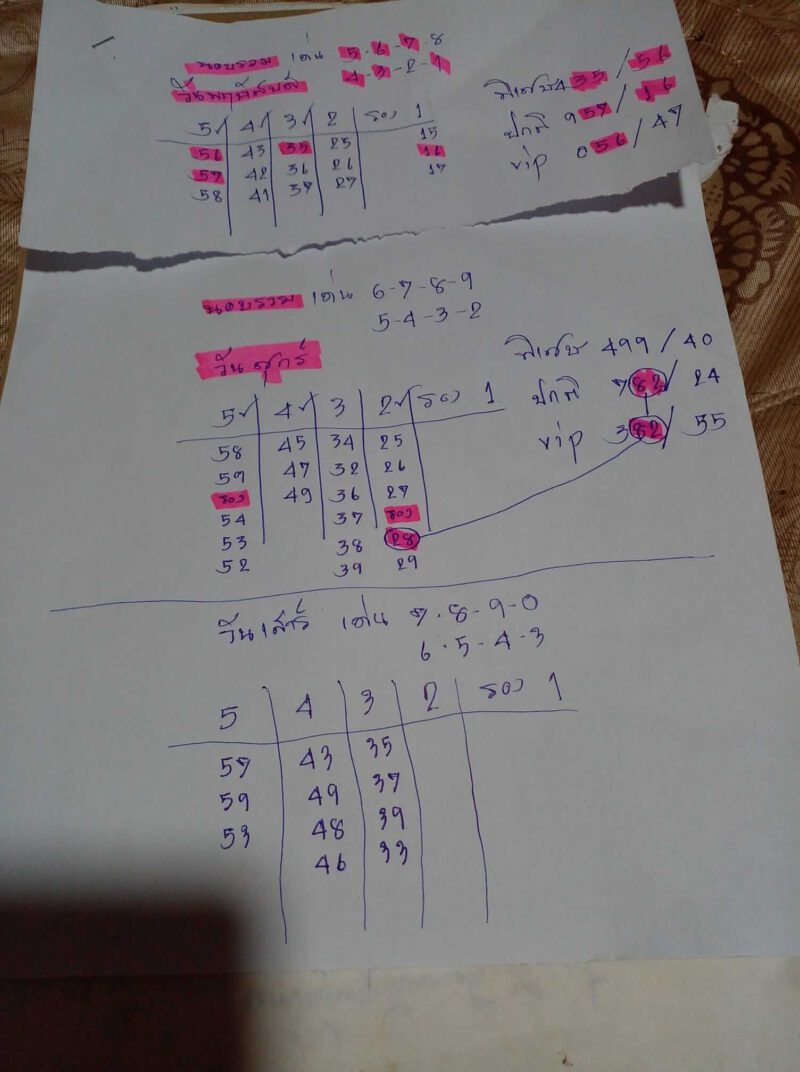 ฮานอยรวม เด่น 5-6-7-8
4-3-2-1
วันพฤหัสบดี
พิเศษ 435/56
ปกติ 957/16
vip 056/47
5✓ 4✓ 3✓ 2 รอง 1
56 43 35 25 15
57 42 36 26 16
58 41 37 27 17
เด่น 6-7-8-9
5-4-3-2
วันศุกร์
พิเศษ 499/40
ปกติ 782/24
vip 382/55
5✓ 4✓ 3 2✓ รอง 1
58 45 34 25
59 47 32 26
รอง 49 36 27
54 37 รอง
53 38 28
52 39 29
วันเสาร์ เด่น 7-8-9-0
6-5-4-3
5 4 3 2 รอง 1
57 43 35
59 49 37
53 48 39
46 33